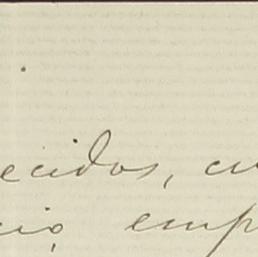 ecidos, cu
cio, emp